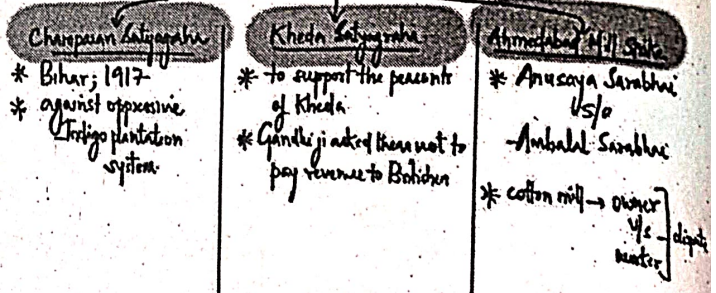 Champaran Satyagraha
* Bihar; 1917
* against oppressive
Indigo plantation
system
Kheda Satyagraha
* to support the peasants
of Kheda
* Gandhi ji asked them not to
pay revenue to Britishers
Ahmedabad Mill Strike
* Anusaya Sarabhai
V/S/o
Ambalal Sarabhai
* cotton mill → owner
V/s
dispute